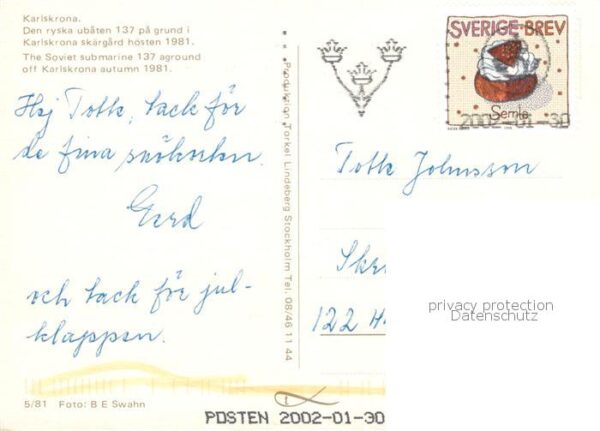 Karlskrona.
Den ryska ubåten 137 på grund i
Karlskrona skärgård hösten 1981.
The Soviet submarine 137 aground
off Karlskrona autumn 1981.
Hej Totte, tack för
de fina
Gerd
och tack för jul-
klappen.
5/81 Foto: B E Swahn
Produktion Torkel Lindeberg Stockholm Tel. 08/46 11 44
SVERIGE BREV
Semla
2002-01-30
Totte Johnsson
Ske
122 H
privacy protection
Datenschutz
POSTEN 2002-01-30